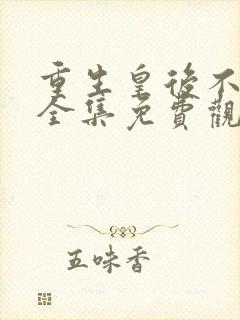 重生皇後不
全集免費觀
五味香